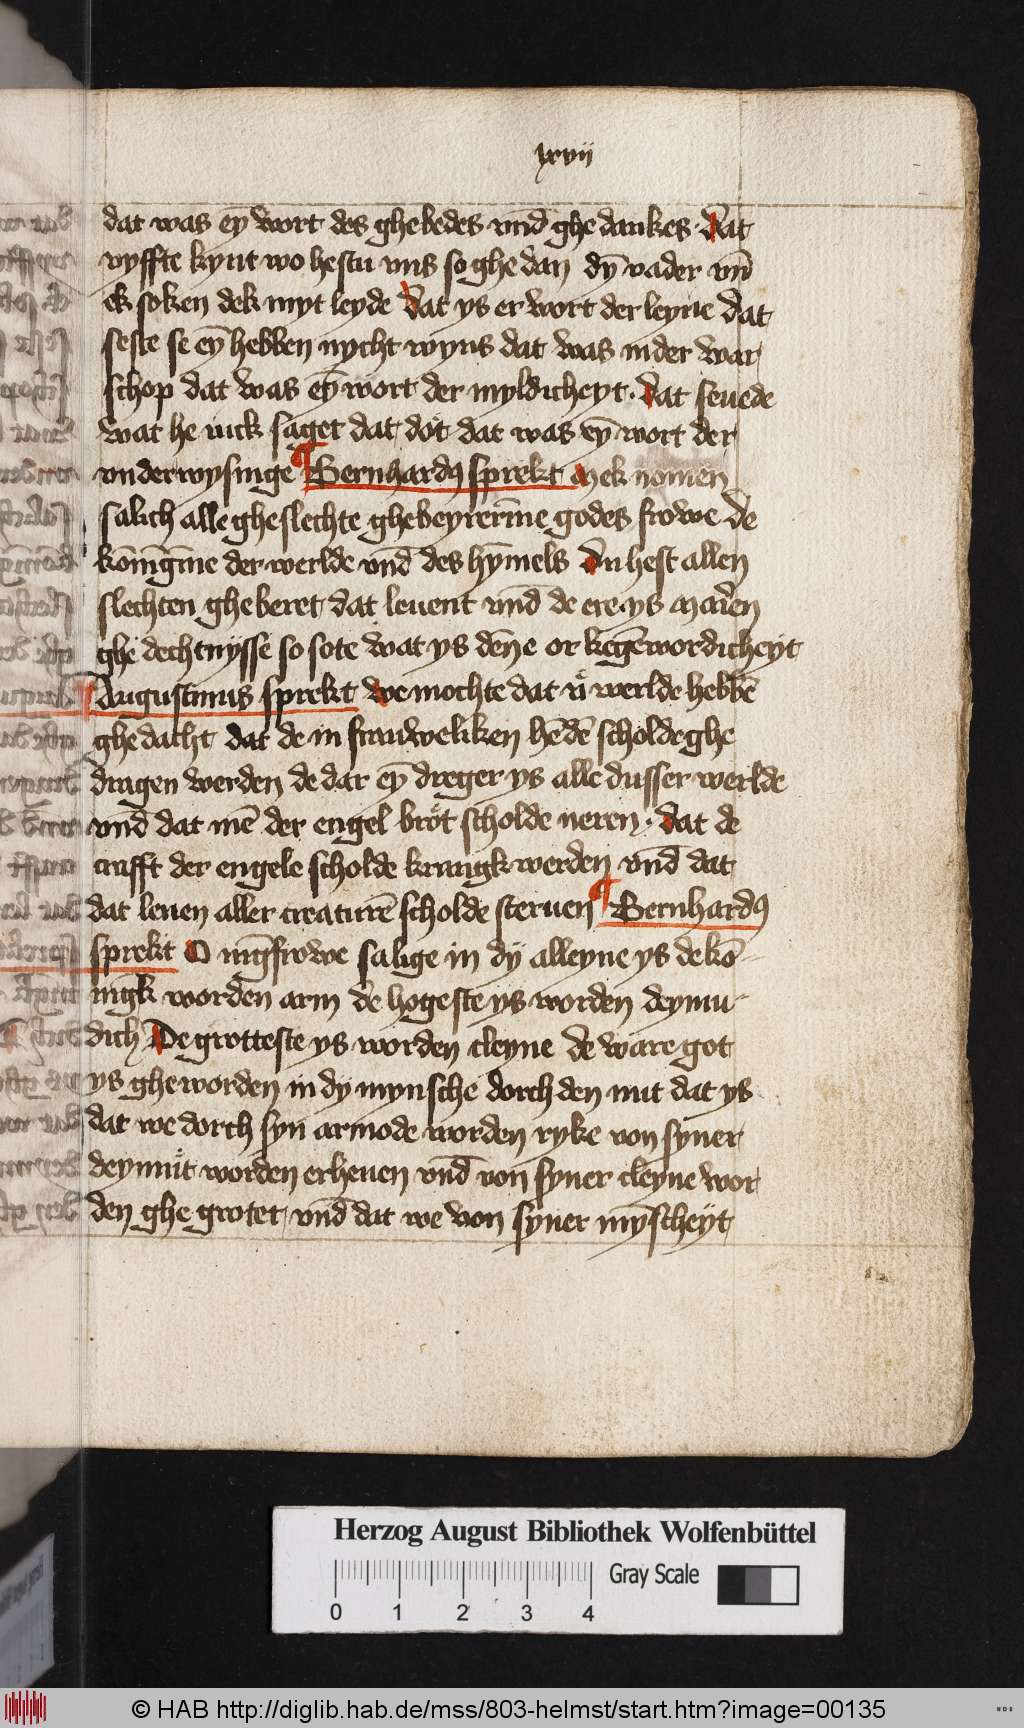 lxvii
dat was eȳ wort des ghebedes vnd ghe dankes · Dat
vyffte kynt wo hestu vns so ghe dan dȳ vader vn̄
ek soken dek myt leyde Dat ys er wort der leyne dat
seste se eȳ hebben nycht wyns dat was in der war
schop dat was eȳ wort der myldicheyt · Dat seuede
wat he iuck saget dat dot dat was eȳ wort der
vnderwysinge ¶ Bernhardꝰ sprekt Mek nomen
salich alle gheslechte ghebeyrerīne godes frowe de
kōnīgīne der werlde vnd des hȳmels Du hest allen
slechten ghe beret dat leuent vnd de ere ys
ghe dechtnysse so sote wat ys dēne or kegēwordicheyt
¶ Augustinus sprekt we mochte dat werlde hebbē
ghe dacht dat de in frauweliken hēdē scholde ghe
dragen werden de dar eȳ dreger ys alle dusser werlde
vnd dat mē der engel brot scholde neren · Dat de
crafft der engele scholde krangk werden vnd dat
dat leuen aller creaturē scholde steruen ¶ Bernhardꝰ
sprekt O mḡfrowe salige in dÿ alleyne ys de kō
nīgk worden arm de hogeste ys worden deymu
dich De grotteste ys worden cleyne de ware got
ys ghe worden in dy mynsche dorch den mit dat ys
dat we dorch syn armode worden ryke von syner
deymut worden erheuen vnd von syner cleyne wor
den ghe grotet vnd dat we von syner mȳscheyt
Herzog August Bibliothek Wolfenbüttel
Gray Scale
0 1 2 3 4
© HAB http://diglib.hab.de/mss/803-helmst/start.htm?image=00135